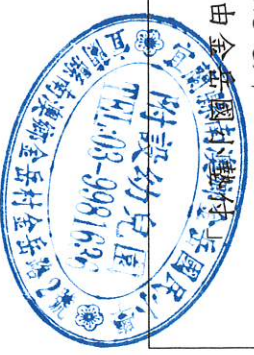 由金岳國小墊付
宜蘭縣南澳鄉金岳國民小學
附設幼兒園
TEL:03-9981636
宜蘭縣南澳鄉金岳村金岳路